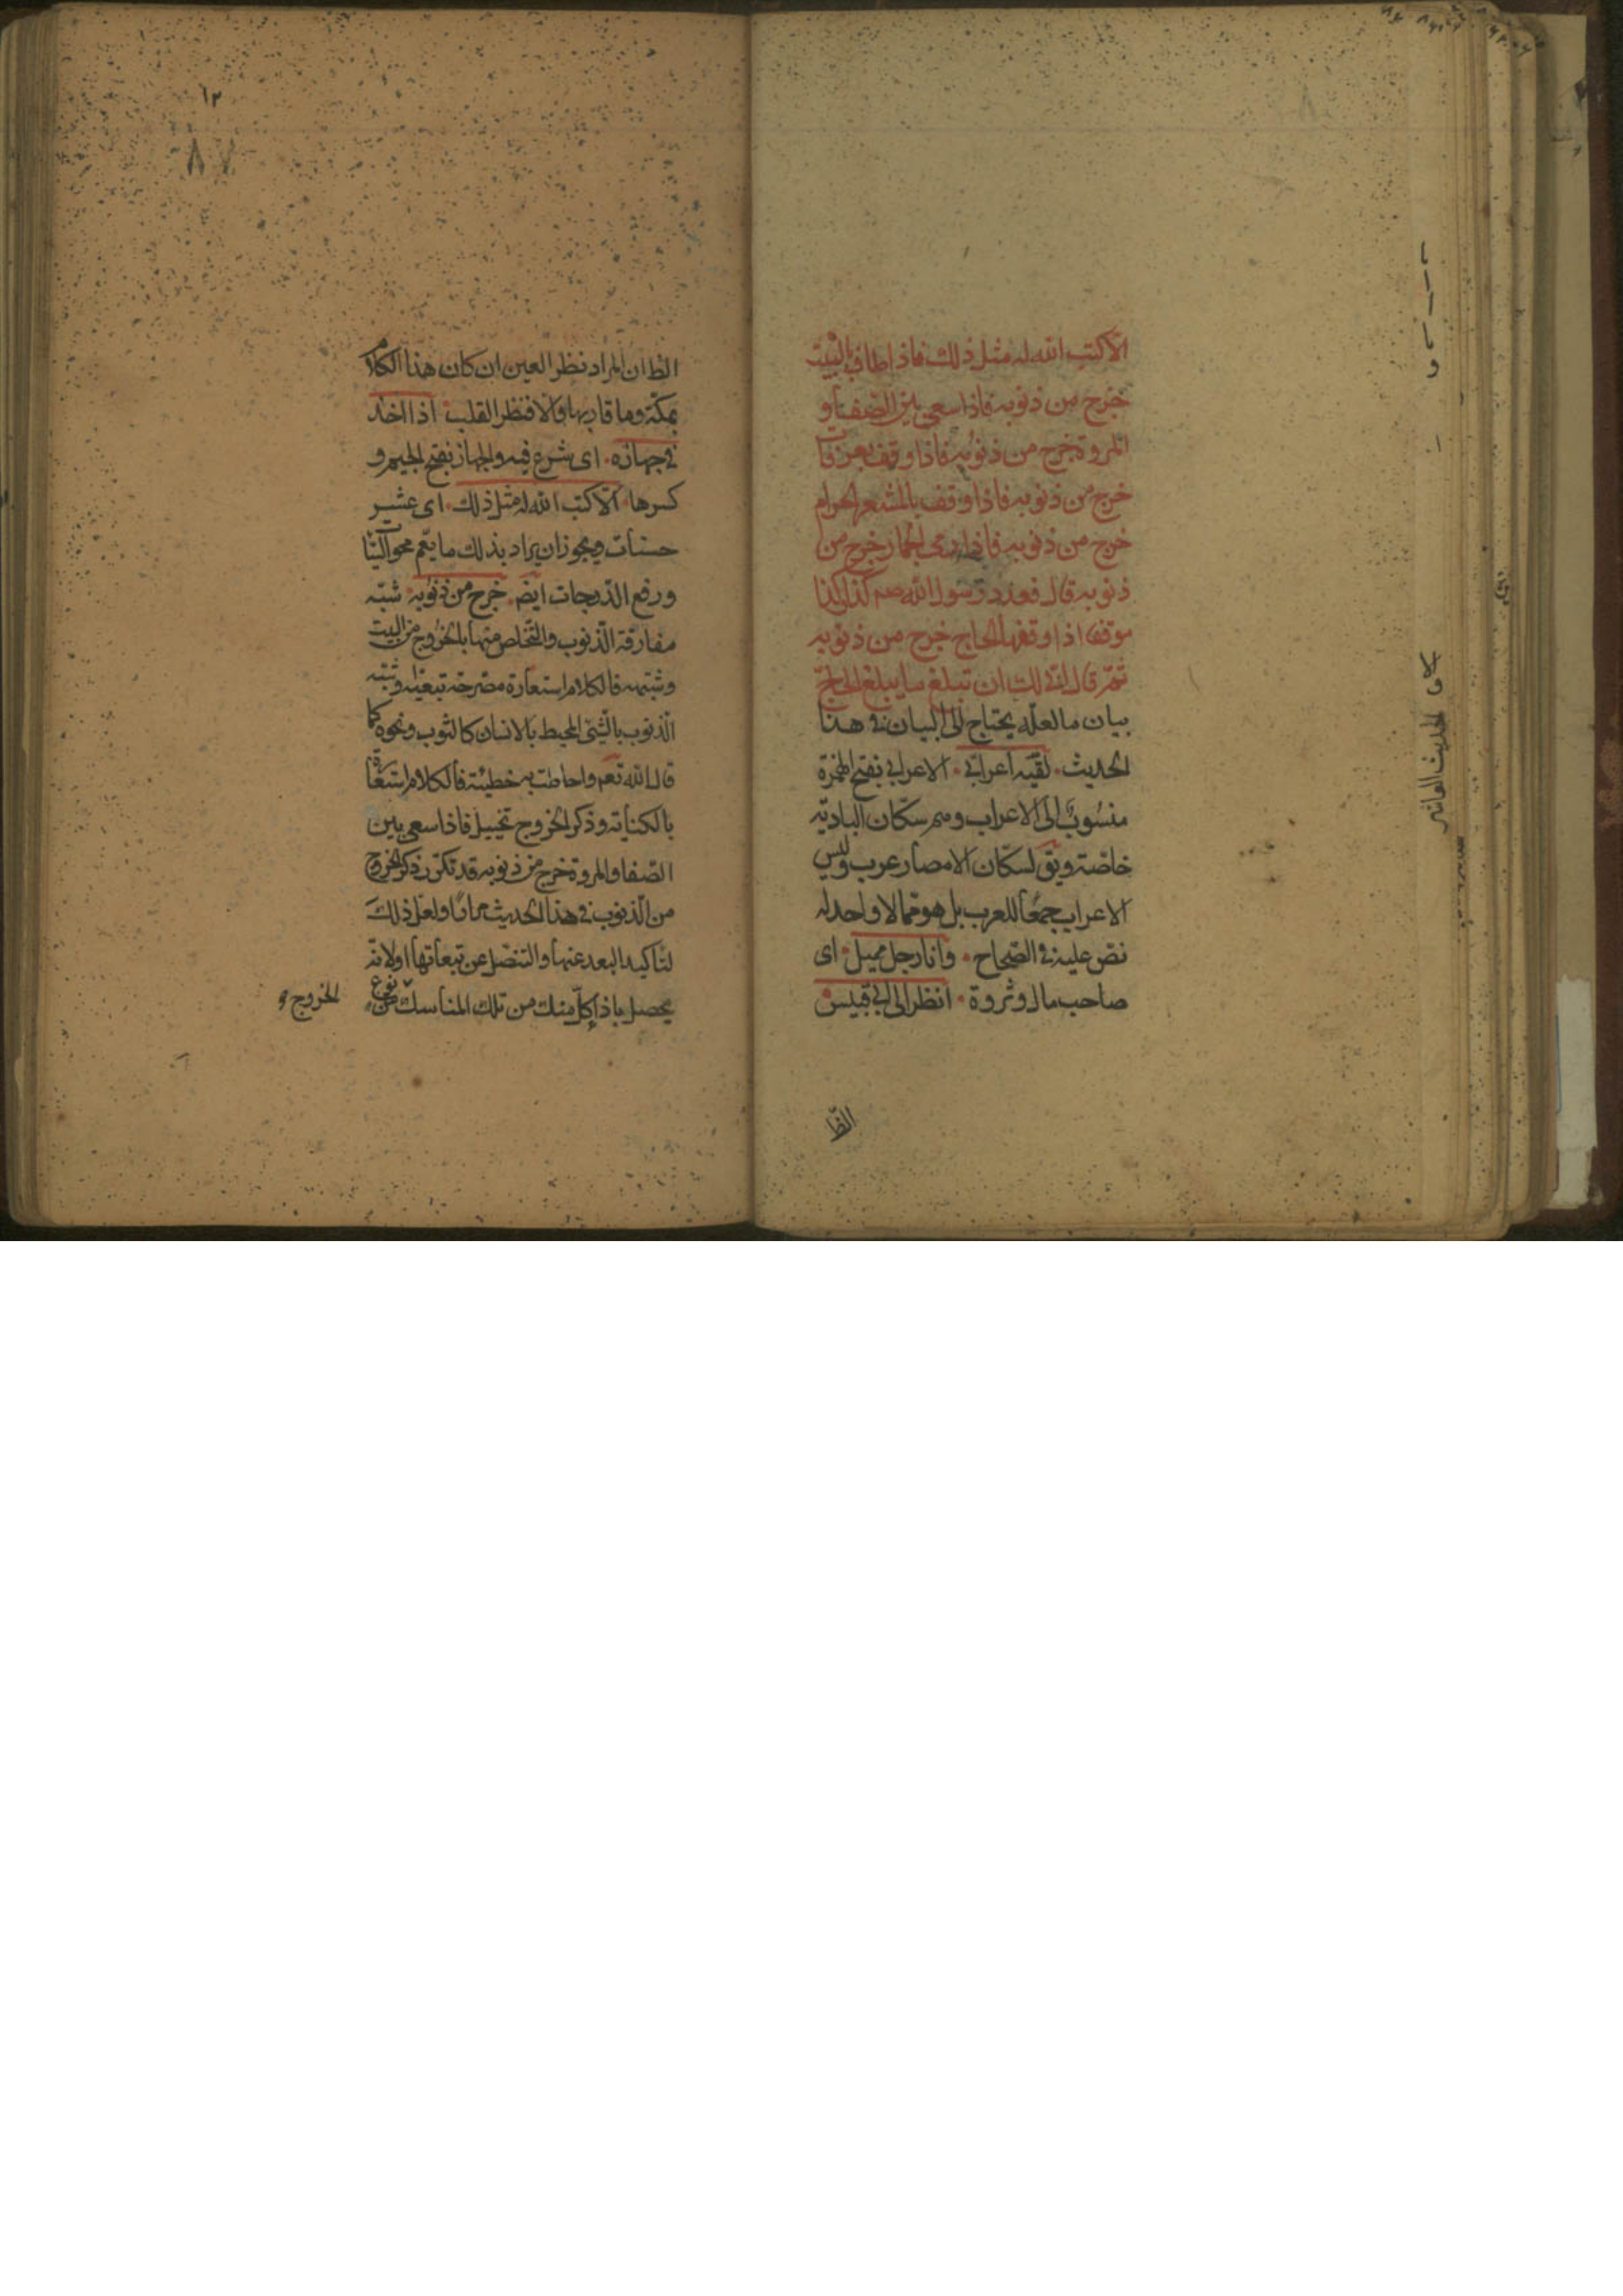 الا كتب الله له مثل ذلك فاذا طاف بالبيت
خرج من ذنوبه فاذا سعى بين الصفا و
المروة خرج من ذنوبه فاذا وقف بعرفات
خرج من ذنوبه فاذا وقف بالمشعر الحرام
خرج من ذنوبه فاذا رمى الجمار خرج من
ذنوبه قال فعدد رسول الله صم كذا كذا
موقفا اذا وقفها الحاج خرج من ذنوبه
ثم قال انى لك ان تبلغ ما يبلغ الحاج
بيان ما لعله يحتاج الى البيان فى هذا
الحديث لقيه اعرابى الاعرابى بفتح الهمزة
منسوب الى الاعراب وهم سكان البادية
خاصة ويق لسكان الامصار عرب وليس
الاعراب جمعا للعرب بل هو مما لا واحد له
نص عليه فى الصحاح وانا رجل مميل اى
صاحب مال وثروة انظر الى ابى قبيس
الظا
الحديث العاشر
١٢
٨٧
الظ ان المراد نظر العين ان كان هذا الكلام
بمكة وما قاربها والا فنظر القلب اذا اخذ
فى جهازه اى شرع فيه والجهاز بفتح الجيم و
كسرها الا كتب الله له مثل ذلك اى عشر
حسنات ويجوز ان يراد بذلك ما يعم محو السيئات
ورفع الدرجات ايض خرج من ذنوبه شبه
مفارقة الذنوب والتخلص منها بالخروج من البيت
وشبهه فالكلام استعارة مصرحة تبعية او شبه
الذنوب بالشئ المحيط بالانسان كالثوب ونحوه كما
قال الله تعم واحاطت به خطيئته فالكلام استعارة
بالكناية وذكر الخروج تخييل فاذا سعى بين
الصفا والمروة خرج من ذنوبه قد تكرر ذكر الخروج
من الذنوب فى هذا الحديث مرارا ولعل ذلك
لتاكيد البعد عنها والتنصل عن تبعاتها او لانه
يحصل باداء كل منسك من تلك المناسك نوع من
الخروج